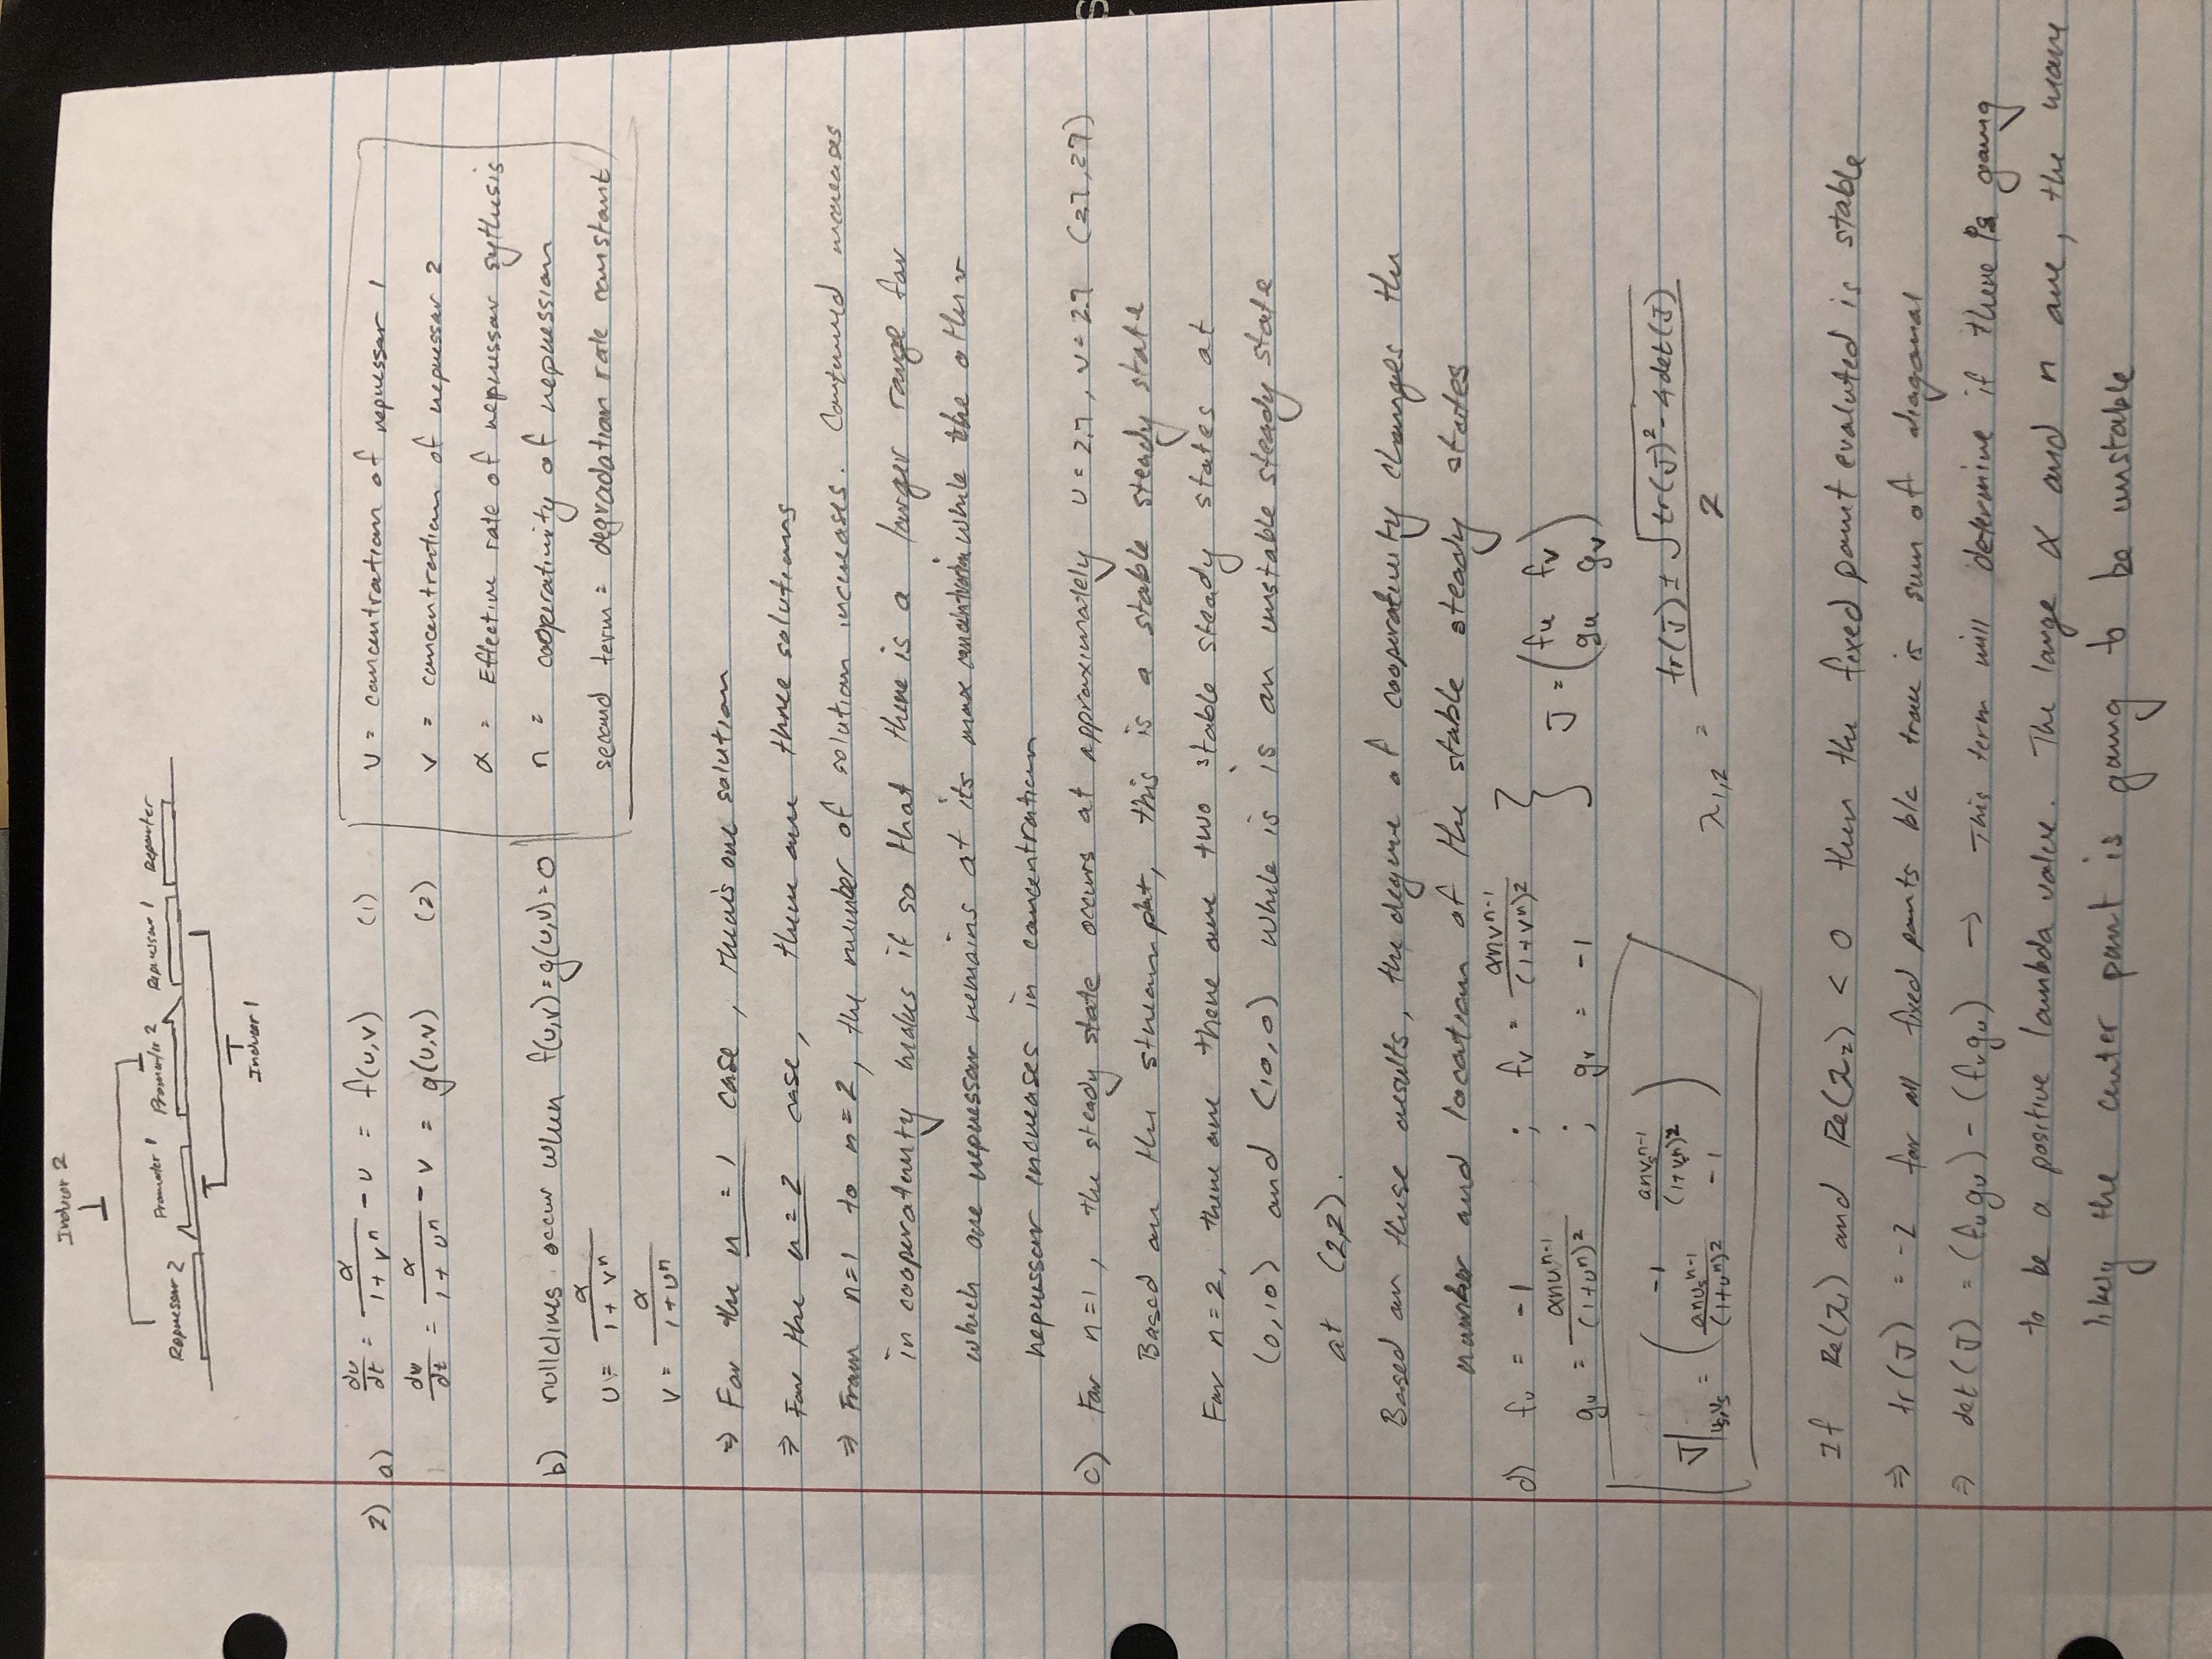 Inducer 2
Repressor 2 Promoter 1 Promoter 2 Repressor 1 Reporter
Inducer 1
2) a) du/dt = α/(1+v^n) - u = f(u,v) (1)
dv/dt = α/(1+u^n) - v = g(u,v) (2)
u = concentration of repressor 1
v = concentration of repressor 2
α = Effective rate of repressor sythesis
n = cooperativity of repression
second term = degradation rate constant
b) nullclines occur when f(u,v)=g(u,v)=0
u = α/(1+v^n)
v = α/(1+u^n)
⇒ For the n = 1 case, there's one solution
⇒ For the n = 2 case, there are three solutions
⇒ From n=1 to n=2, the number of solution increases. Continued increases
in cooperativity makes it so that there is a larger range for
which one repressor remains at its max concentration while the other
repressor increases in concentration
c) For n=1, the steady state occurs at approximately u = 2.7, v = 2.7 (2.7, 2.7)
Based on the stream plot, this is a stable steady state
For n=2, there are there are two stable steady states at
(0,10) and (10,0) while is is an unstable steady state
at (2,2).
Based on these results, the degree of cooperativity changes the
number and location of the stable steady states
d) fu = -1 ; fv = αnv^(n-1)/(1+v^n)^2 } J = (fu fv
gu = αnu^(n-1)/(1+u^n)^2 ; gv = -1 gu gv)
J|us,vs = (-1 anvs^(n-1)/(1+vs^n)^2
anus^(n-1)/(1+u^n)^2 -1)
λ1,2 = (tr(J) ± √(tr(J)^2 - 4det(J)))/2
If Re(λ1) and Re(λ2) < 0 then the fixed point evaluted is stable
⇒ tr(J) = -2 for all fixed points b/c trace is sum of diagonal
⇒ det(J) = (fu gv) - (fv gu) → This term will determine if there is going
to be a positive lambda value. The large α and n are, the more
likely the center point is going to be unstable